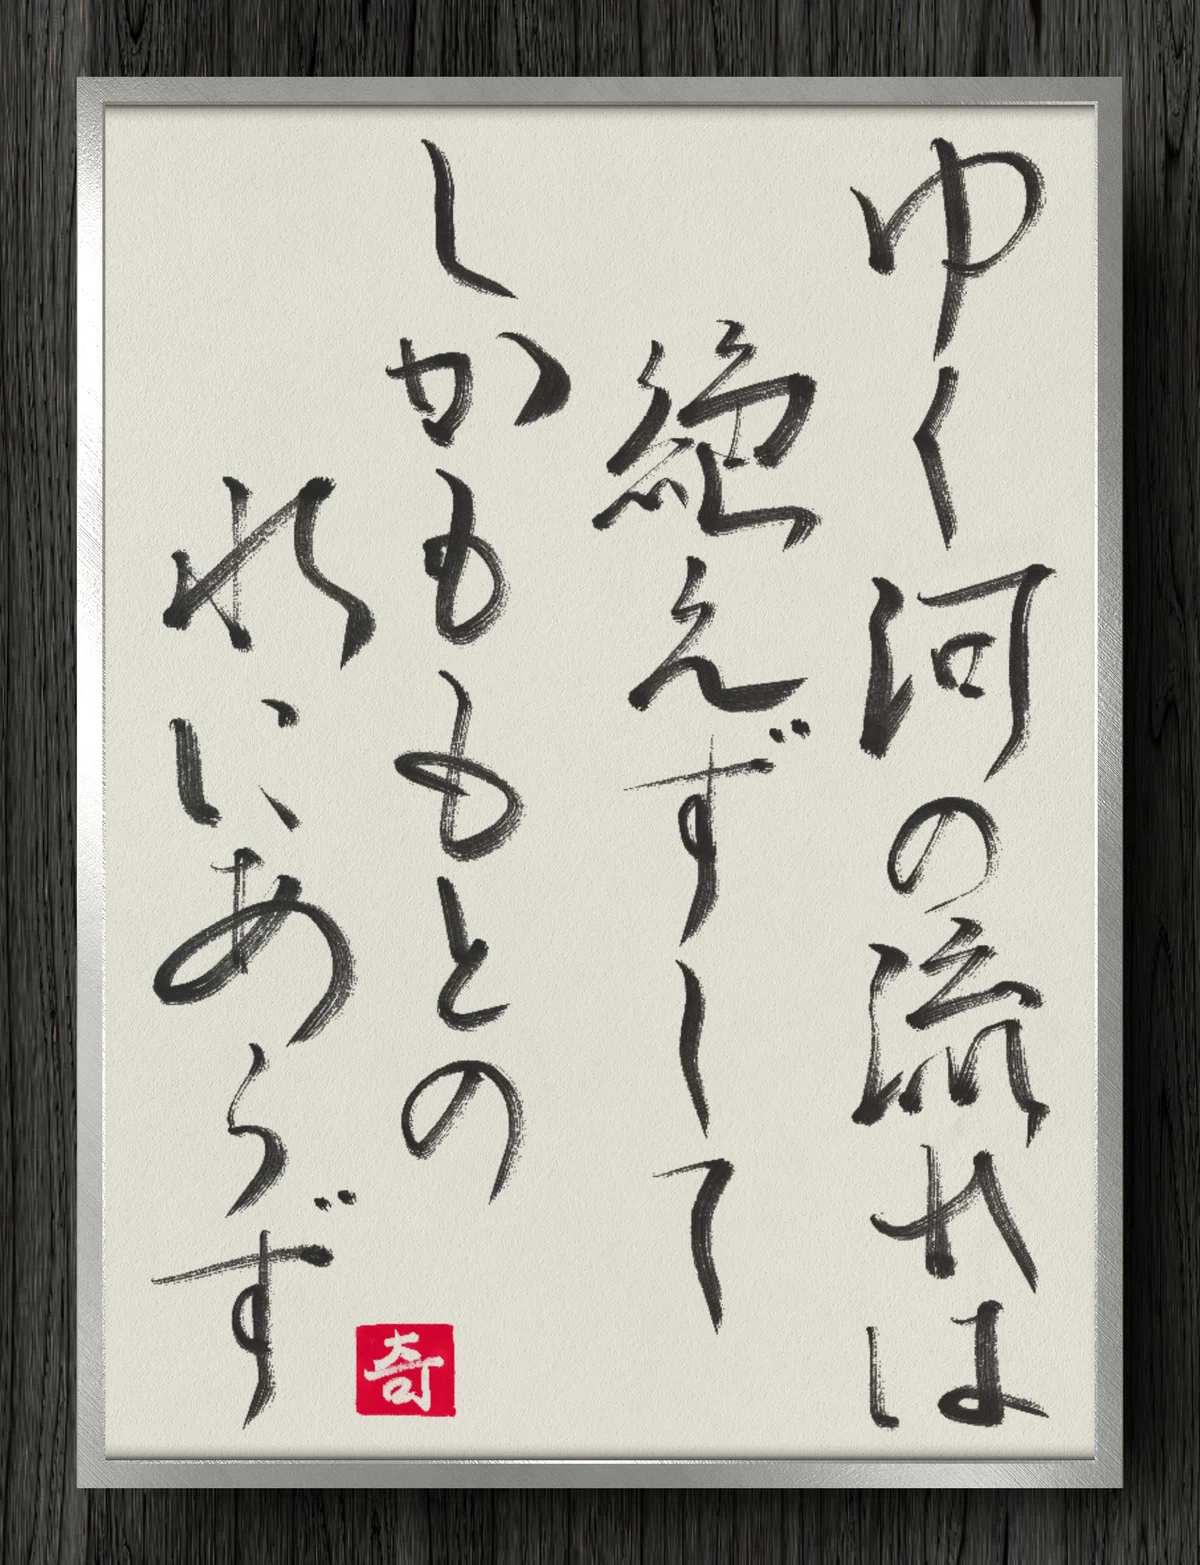 ゆく河の流れは
絶えずして
しかももとの
れにあらず
奇